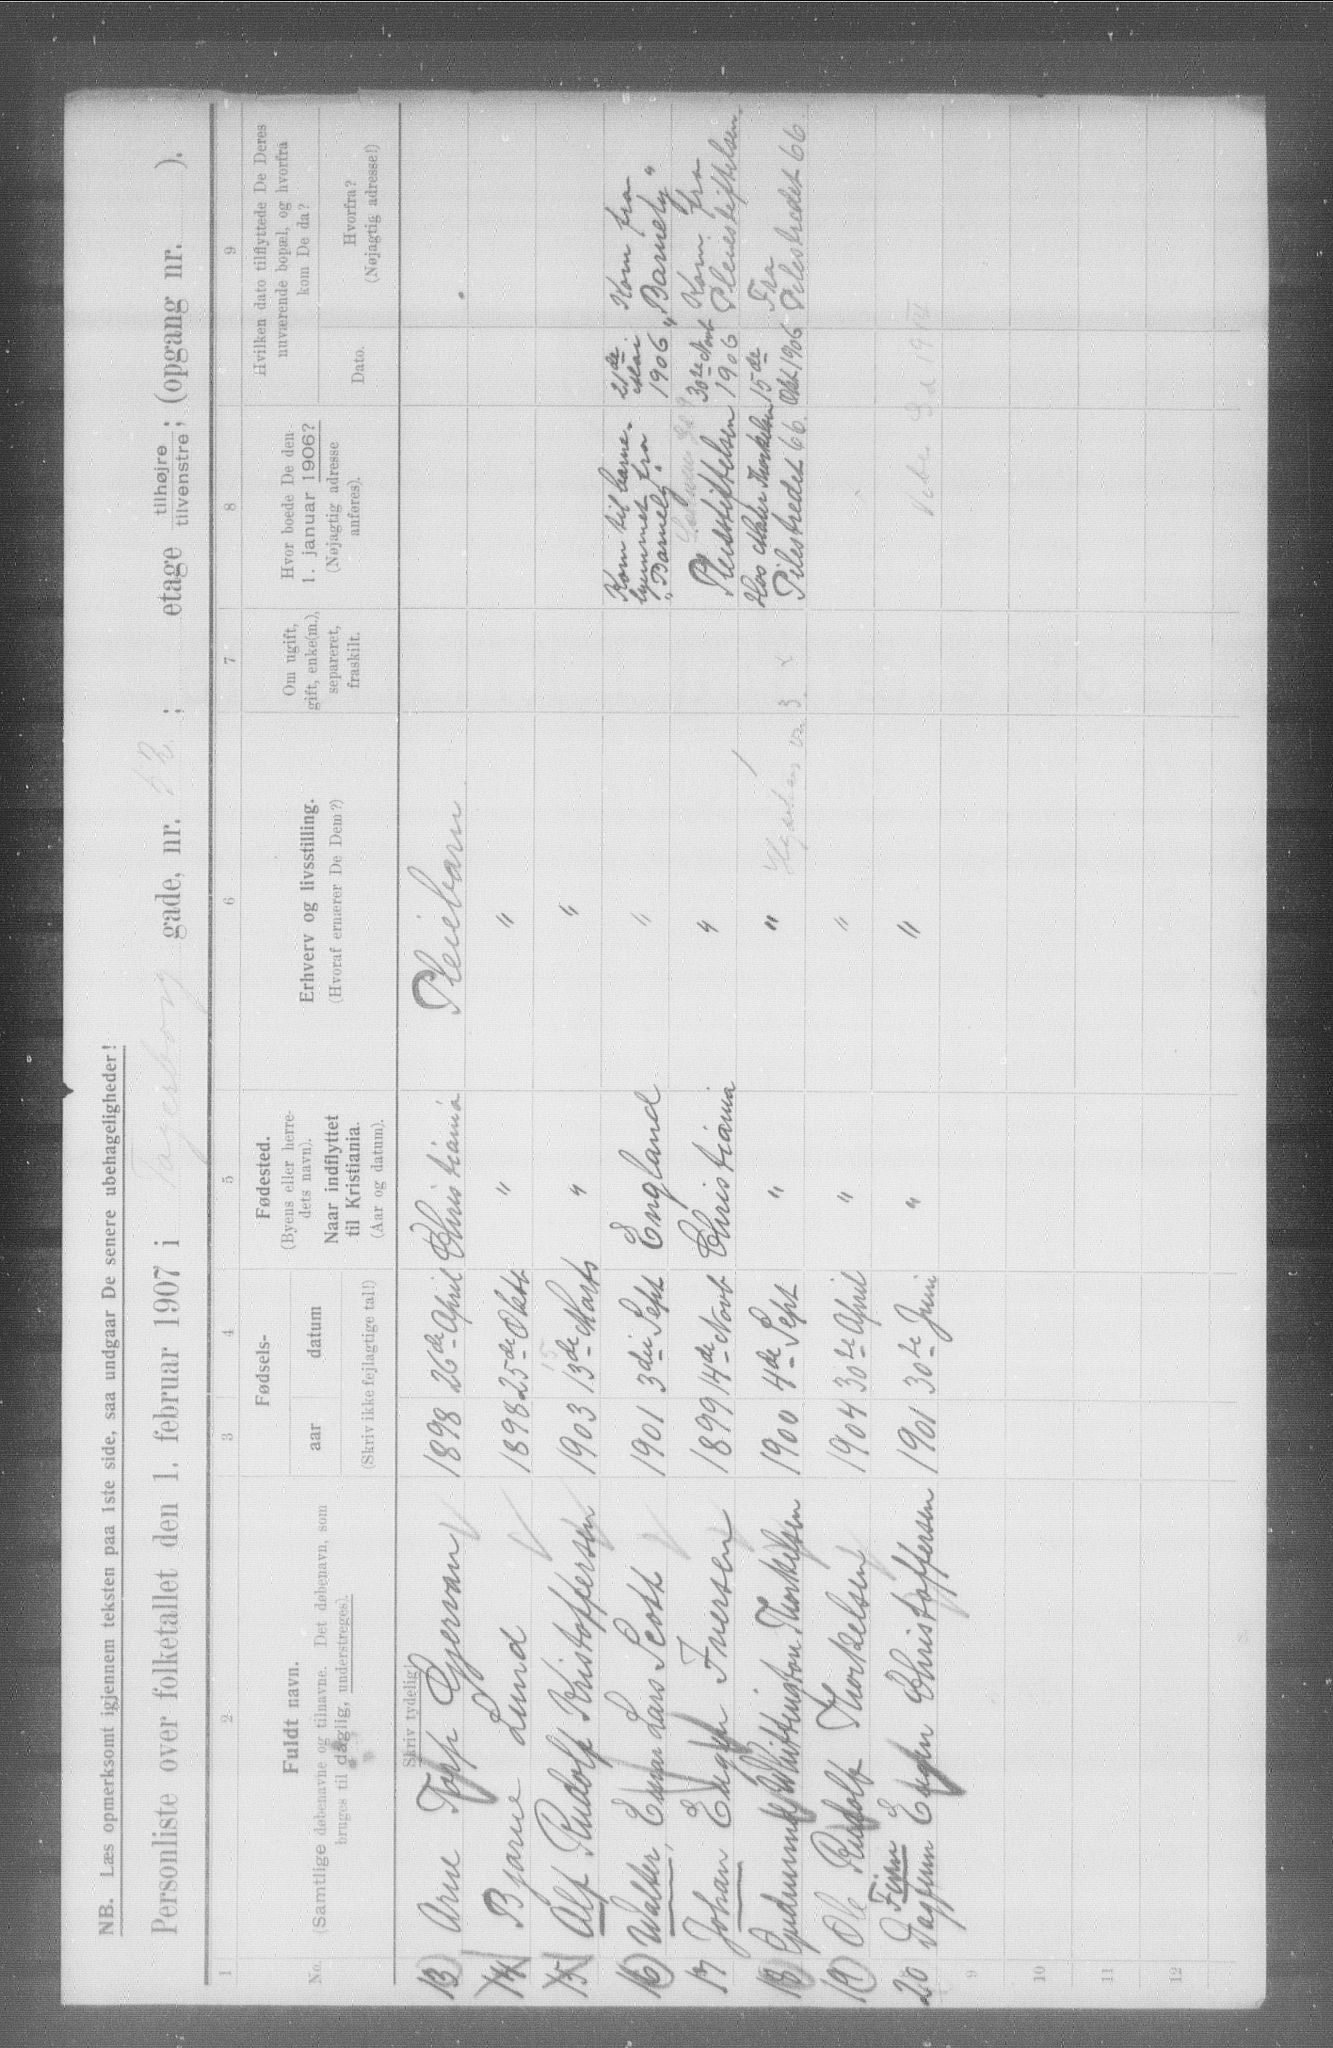 NB. Læs opmerksomt igjennem teksten paa 1ste side, saa undgaar De senere ubehageligheder!
Personliste over folketallet den 1. februar 1907 i Fagerborg gade, nr. 52 ; etage tilhøjre tilvenstre; (opgang nr. ).
1 2 3 4 5 6 7 8 9
No.
Fuldt navn.
(Samtlige døbenavne og tilnavne. Det døbenavn, som bruges til daglig, understreges).
Fødsels-
aar datum
(Skriv ikke fejlagtige tal!)
Fødested.
(Byens eller herredets navn).
Naar indflyttet til Kristiania.
(Aar og datum).
Erhverv og livsstilling.
(Hvoraf ernærer De Dem?)
Om ugift, gift, enke(m.), separeret, fraskilt.
Hvor boede De den 1. januar 1906?
(Nøjagtig adresse anføres).
Hvilken dato tilflyttede De Deres nuværende bopæl, og hvorfra kom De da?
Dato.
Hvorfra?
(Nøjagtig adresse!)
Skriv tydelig!
13) Arne Topp Gjervan 1898 26de April Christiania Pleiebarn
14 Bjarne Lund 1898 25de Oktb " "
15 Alf Rudolf Kristoffersen 1903 13de Marts " "
15
16) Walter Lars Scott 1901 3die Sept England " Kom til barnehjemmet fra "Barnely" 21de Mai 1906 Kom fra "Barnely"
17 Johan Eugen Iversen 1899 14de Novb Christiania " Pleiestiftelsen 30te Novb 1906 Kom fra Pleiestiftelsen
18) Gudmund Whittington Thorkelsen 1900 4de Sept " " Hos Thorkelsen Pilestredet 66. 15de Okt 1906 Fra Pilestredet 66.
19) Ole Rudolf Thorkelsen 1904 30te April " "
Finn
20 Dagfinn Eugen Christoffersen 1901 30te Juni " "
9
10
11
12